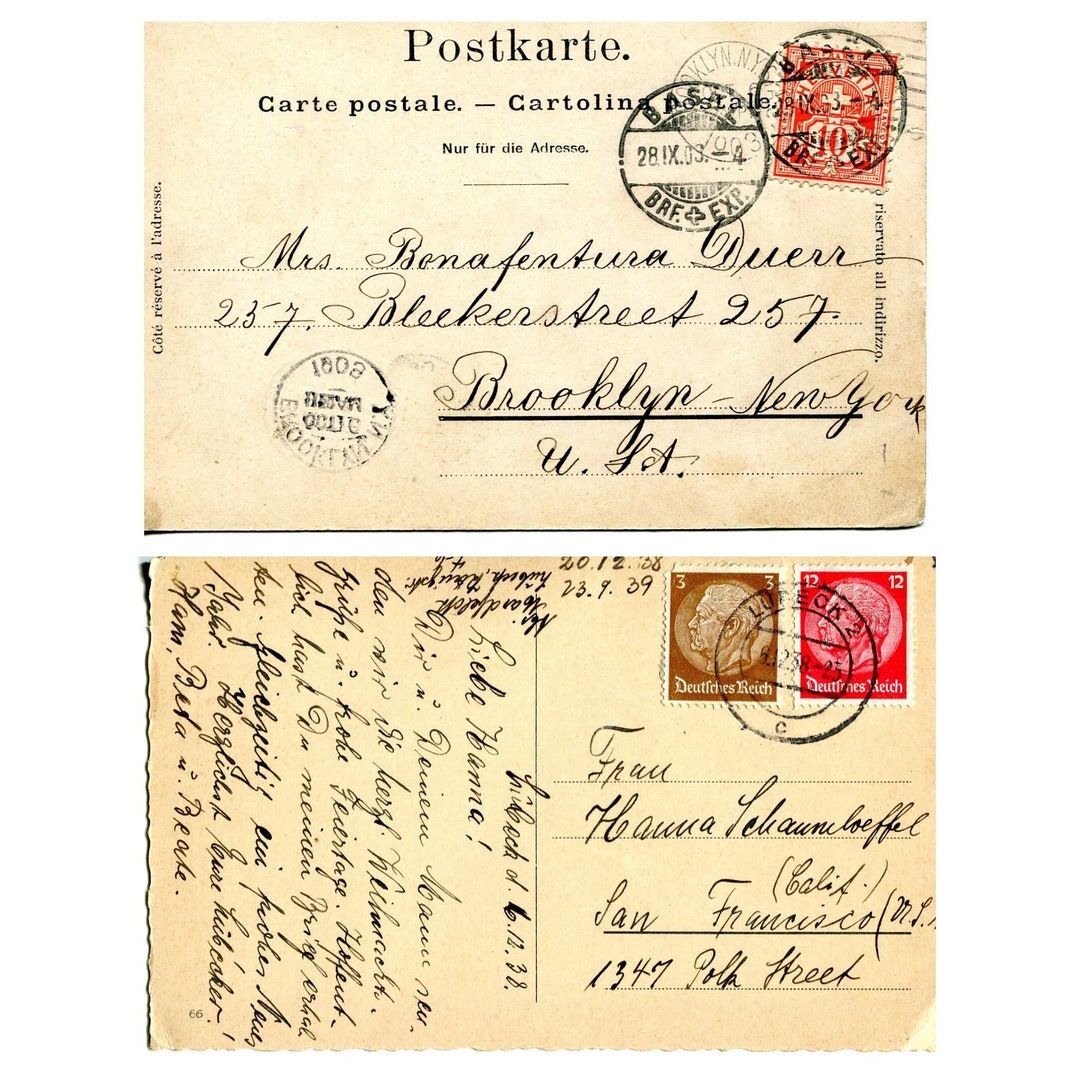 Postkarte.
Carte postale. — Cartolina postale.
Nur für die Adresse.
Côté réservé à l'adresse.
riservato all indirizzo.
BASEL
28.IX.03.–4
BRF. EXP.
BROOKLYN. N.Y.
1903
HELVETIA
10
FRANCO
Mrs. Bonafentura Duerr
257. Bleekerstreet 257.
Brooklyn – New York
U. S. A.
BROOKLYN N.Y.
20.12.38
23.9.39
Lübeck d. 6.12.38.
Liebe Hanna!
Dir u. Deinem Mann sen-
den wir die herzl. Weihnachts-
grüße u. frohe Feiertage. Hoffent-
lich hast Du meinen Brief erhal-
ten. Gleichzeitig ein frohes Neues
Jahr! Herzlichst Eure Lübecker!
Ham, Beta u. Beate.
66
3 3
Deutsches Reich
12 12
Deutsches Reich
LÜBECK 2
12.38.-23
c
Frau
Hanna Schaumloeffel
(Calif.)
San Francisco (U.S.
1347 Polk Street